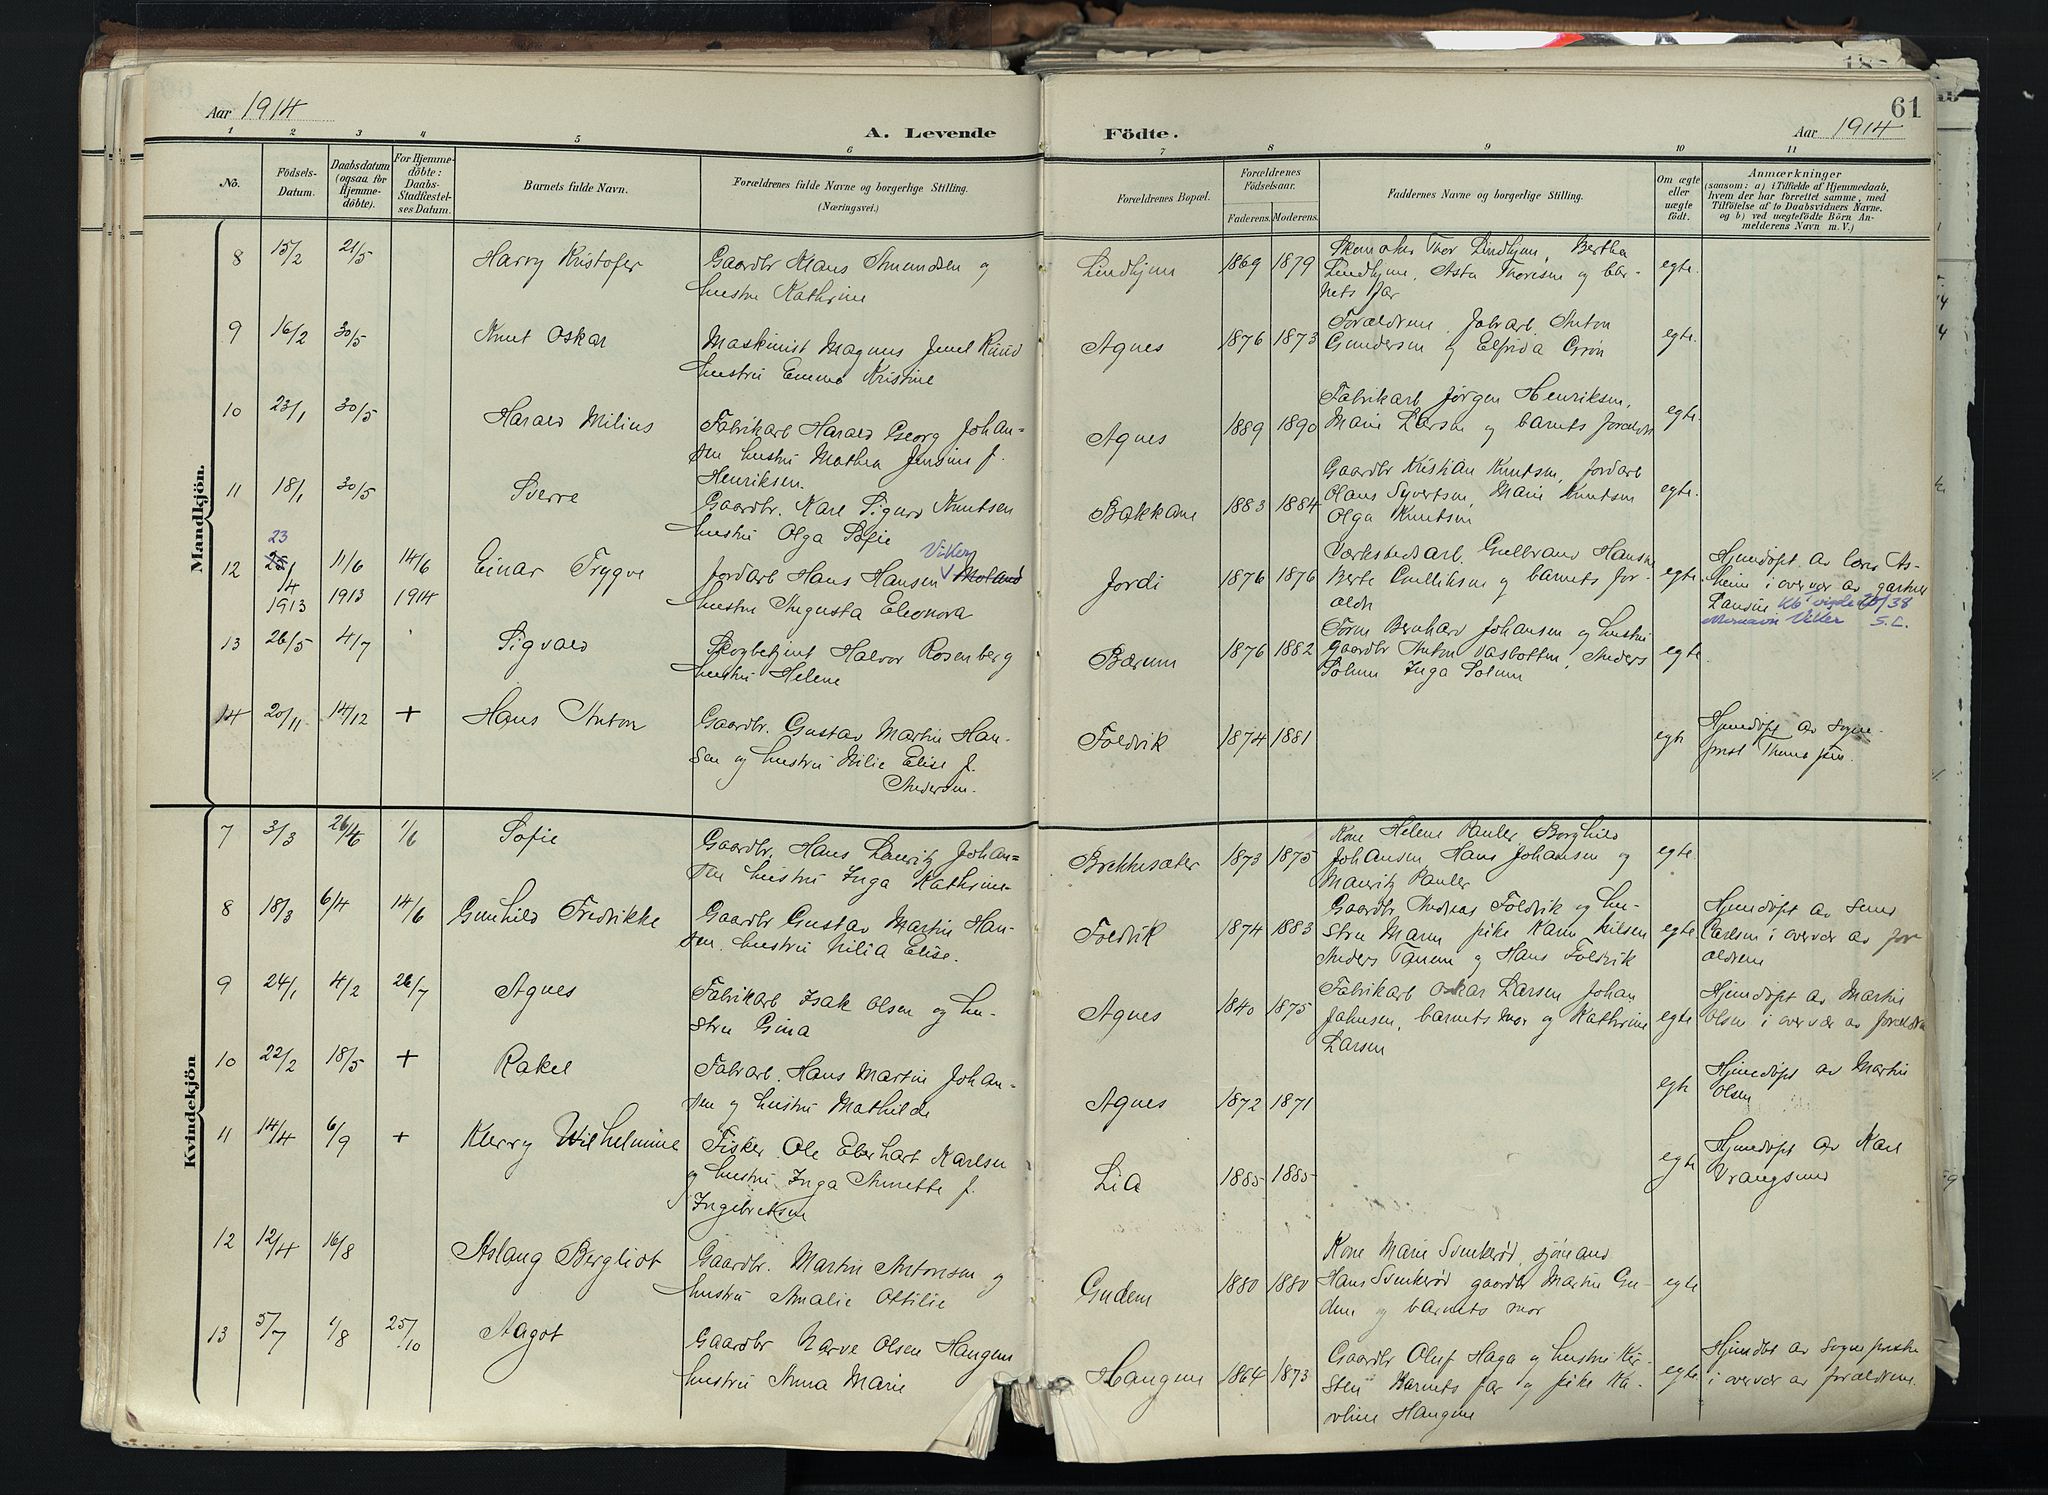 Aar 1914
A. Levende Födte.
61
Aar 1914
1 2 3 4 5 6 7 8 9 10 11
No.
Födsels-Datum.
Daabsdatum (ogsaa for Hjemme-döbte).
For Hjemme-döbte: Daabs-Stadfæstel-ses Datum.
Barnets fulde Navn.
Forældrenes fulde Navne og borgerlige Stilling. (Næringsvei.)
Forældrenes Bopæl.
Forældrenes Födselsaar.
Faderens. Moderens.
Faddernes Navne og borgerlige Stilling.
Om ægte eller uægte födt.
Anmærkninger
(saasom: a) i Tilfælde af Hjemmedaab,
hvem der har forrettet samme, med
Tilföielse af to Daabsvidners Navne.
og b) ved uægtefödte Börn An-
melderens Navn m. V.)
Mandkjön.
8 15/2 21/5 Harry Kristofer
Gaardbr Hans Amundsen og
hustru Kathrine
Lindhjem 1869 1879
Thor Lindhjem, Bertha
Lindhjem, Asta Thorisen og bar-
nets far
egte.
9 16/2 30/5 Knut Oskar
Maskinist Magnus Juul Rüüd
hustru Emma Kristine
Agnes 1876 1873
Forældrene, Fabrarb. Anton
Gundersen og Elfrida Grøn
egte.
10 23/1 30/5 Harald Milius
Fabrikarb Harald Georg Johan-
sen hustru Mathea Jensine f.
Henriksen.
Agnes 1889 1890
Fabrikarb Jørgen Henriksen,
Marie Larsen og barnets forældre
egte.
11 18/1 30/5 Sverre
Gaardbr. Karl Sigurd Knutsen
hustru Olga Sofie
Bakkane 1883 1884
Gaardbr Kristian Knutsen, jordarb
Olaus Syvertsen, Marie Knutsen
Olga Knutsen
egte.
12 23 25/4 1913 11/6 1913 14/6 1914 Einar Trygve
Viker
Jordarb Hans Hansen Moland
hustru Augusta Eleonora
Jordi 1876 1876
Værkstedsarb. Gulbrand Hansen
Berte Gulliksen og barnets for-
ældr
egte
Hjemdøpt av lærer As-
heim i overvær av gartner
Lansen Kb vigde /38
Mornavn Viker S.L.
13 26/5 4/7 Sigvald
Skogbetjent Halvor Rosenberg
hustru Helene
Bærum 1876 1882
Bernhard Johansen og hustru
Gaardbr Anton Vasbotten, Anders
Solum Inga Solum
egte
14 20/11 14/12 + Hans Anton
Gaardbr. Gustav Martin Han-
sen og hustru Nilie Elise f.
Andersen.
Foldvik 1874 1881
egte
Hjemdøpt av sogne-
prest Thomassen.
Kvindekjön
7 3/3 26/4 1/6 Sofie
Gaardbr. Hans Lauritz Johan-
sen hustru Inga Kathrine
Brekkesæter 1873 1875
Kone Helene Pauler Borghild
Johansen, Hans Johansen og
Mauritz Pauler
egte.
8 18/3 6/4 14/6 Gunhild Fredrikke
Gaardbr Gustav Martin Han-
sen. hustru Nilia Elise.
Foldvik 1874 1883
Gaardbr, Andreas Foldvik og hu-
stru Maren pike Karen Nilsen
Anders Tanum og Hans Foldvik
egte
Hjemdøpt av
Carlsen i overvær av for
ældrene
9 24/1 4/2 26/7 Agnes
Fabrikarb Isak Olsen og hu-
stru Gina
Agnes 1840 1875
Fabrikarb Oskar Larsen Johan
Johnsen, barnets mor og Kathrine
Larsen
egte
Hjemdøpt av Martin
Olsen i overvær av forældrene
10 22/2 18/5 + Rakel
Fabrarb. Hans Martin Johan-
sen og hustru Mathilde
Agnes 1872 1871
egte
Hjemdøpt av Martin
Olsen
11 14/4 6/9 + Kerry Wilhelmine
Fisker. Ole Eberhart Karlsen
og hustru Inga Annette f.
Ingebriktsen
Lia 1885 1885
egte
Hjemdøpt av Karl
Vrangsund
12 12/4 16/8 Aslaug Bergliot
Gaardbr. Martin Antonsen og
hustru Amalie Ottilie
Gudem 1880 1880
Kone Marie Svinkerød, sjømand
Hans Svinkerød gaardbr Martin Gu-
dem og barnets mor
egte
13 5/7 1/8 25/10 Aagot
Gaardbr Narve Olsen Haugene
hustru Anna Marie
Haugene 1864 1873
Gaardbr Oluf Haga og hustru Kir-
sten Barnets far og pike Ka-
roline Haugene
egte
Hjemdøbt av Sogneprest
i overvær av forældrene.